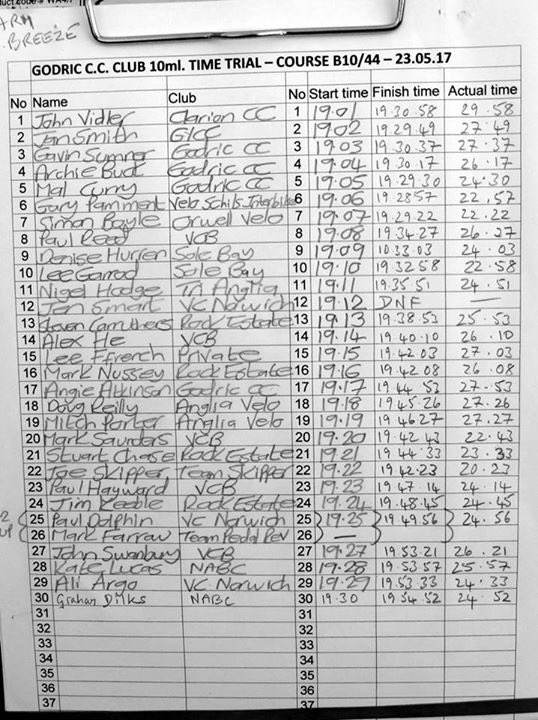 ARM
BREEZE
GODRIC C.C. CLUB 10ml. TIME TRIAL – COURSE B10/44 – 23.05.17
No Name Club No Start time Finish time Actual time
1 John Vidler Clarion CC 1 19.01 19.30.58 29.58
2 Jon Smith GICC 2 19.02 19 29.49 27.49
3 Gavin Sumner Godric CC 3 19.03 19.30.37 27.37
4 Archie Bud Godric CC 4 19.04 19.30.17 26.17
5 Mal Curry Godric CC 5 19.05 19.29.30 24.30
6 Gary Pamment Velo Schils Interbike 6 19.06 19.28 57 22.57
7 Simon Bayle Orwell Velo 7 19.07 19.29 22 22.22
8 Paul Reed VCB 8 19.08 19.34.27 26.27
9 Denise Hurren Sole Bay 9 19.09 1033.03 24.03
10 Lee Garrod Sole Bay 10 19.10 19 32 58 22.58
11 Nigel Hodge Tri Anglia 11 19.11 19.35.51 24.51
12 Jon Smart VC Norwich 12 19.12 DNF —
13 Steven Carruthers Rock Estate 13 19.13 19.38.53 25.53
14 Alex He VCB 14 19.14 19.40.10 26.10
15 Lee Ffrench Private 15 19.15 19.42 03 27.03
16 Mark Nussey Rock Estate 16 19.16 19.42 08 26.08
17 Angie Atkinson Godric CC 17 19.17 19 44 53 27.53
18 Doug Reilly Anglia Velo 18 19.18 19 45.26 27.26
19 Mitch Porter Anglia Velo 19 19.19 19 46 27 27.27
20 Mark Saunders VCB 20 19.20 19.42 43 22.43
21 Stuart Chase Rock Estate 21 19 21 19 44.33 23.33
22 Joe Skipper Team Skipper 22 19.22 19.42.23 20.23
23 Paul Hayward VCB 23 19.23 19 47.14 24.14
24 Jim Keeble Rock Estate 24 19.24 19.48.45 24.45
2 up
25 Paul Dolphin VC Norwich 25 19.25 19 49 56 24.56
26 Mark Farrow Team Pedal Rev 26 —
27 John Swanbury VCB 27 19.27 19 53.21 26.21
28 Kate Lucas NABC 28 19.28 19 53 57 25.57
29 Ali Argo VC Norwich 29 19.29 19.53.33 24.33
30 Graham Dilks NABC 30 19.30 19 54 52 24.52
31 31
32 32
33 33
34 34
35 35
36 36
37 37